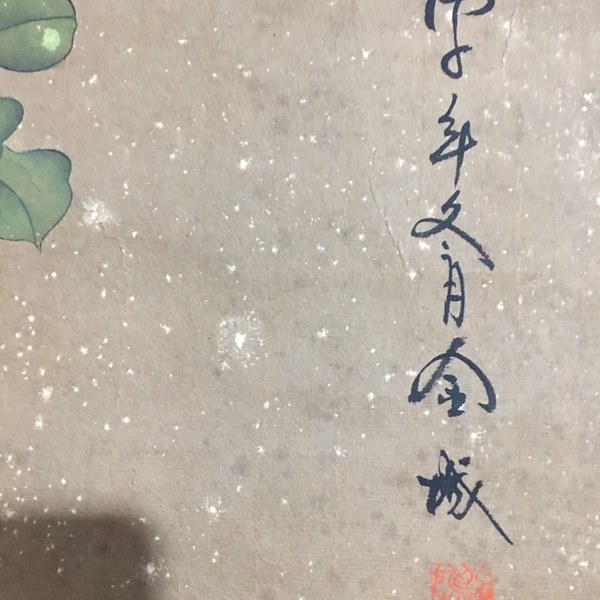 年冬月金城